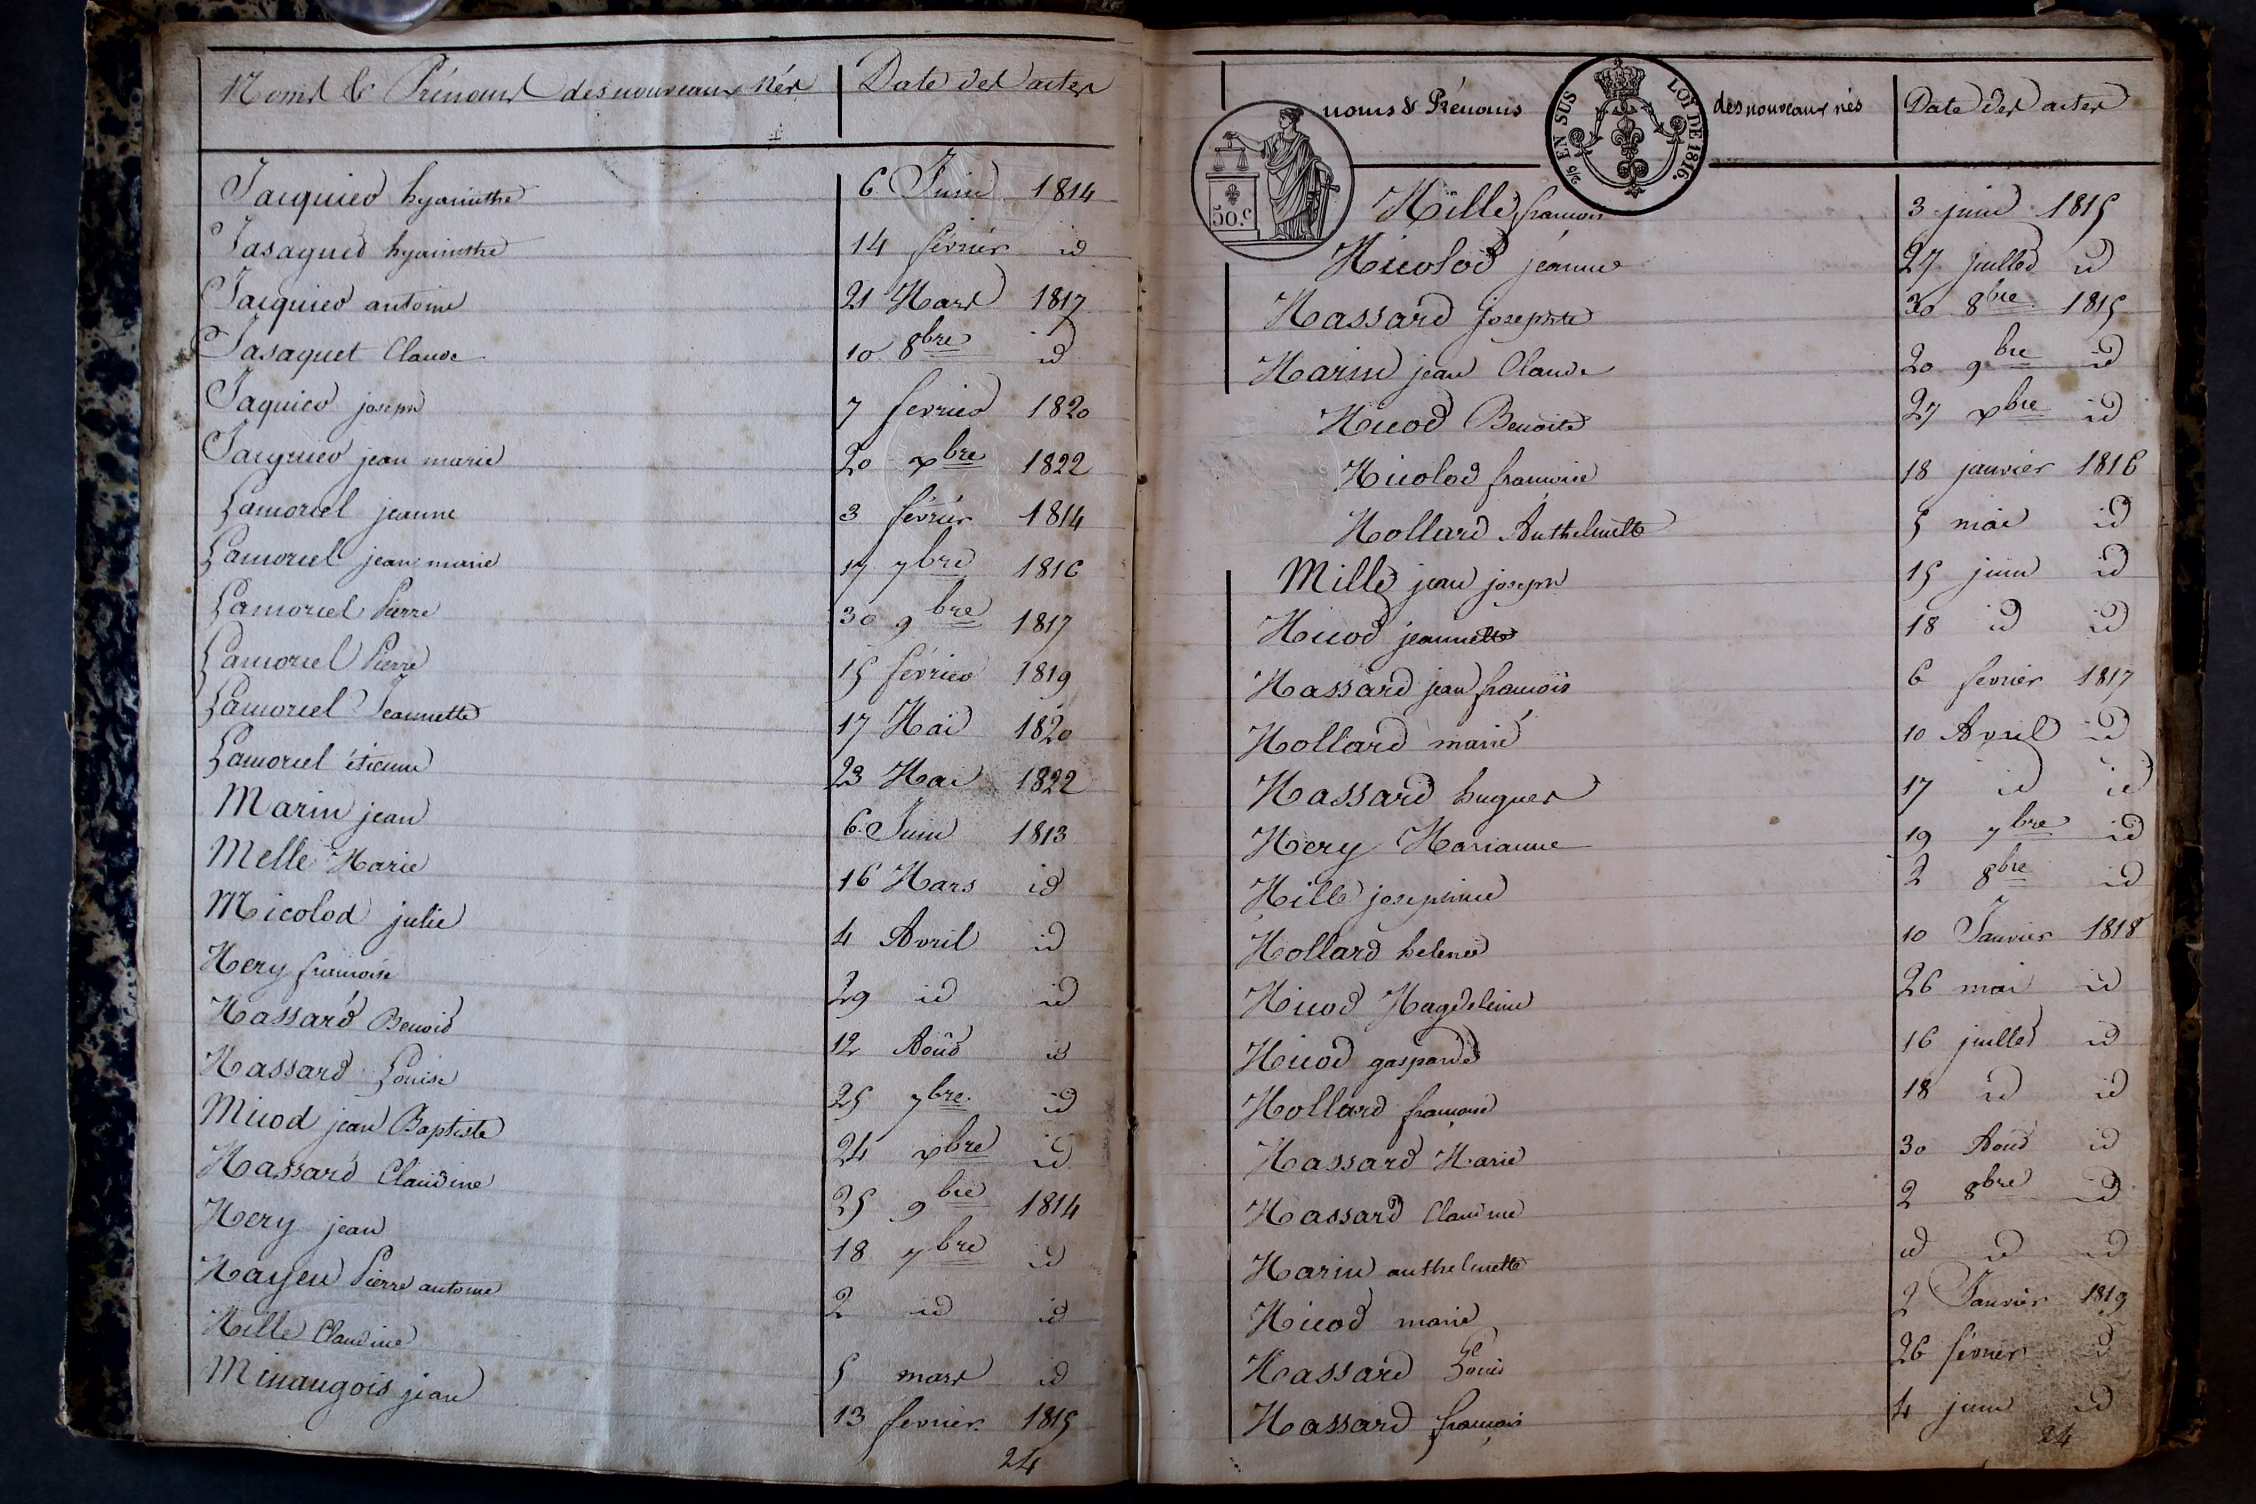 Noms & Prénoms des nouveaux Nés Date des actes
Jacquier hyacinthe 6 Juin 1814
Jasaguet hyacinthe 14 février id
Jacquier antoine 21 Mars 1817
Jasaquet Claude 10 8bre id
Jaquier joseph 7 fevrier 1820
Jacquier jean marie 20 xbre 1822
Lamoriel jeanne 3 février 1814
Lamoriel jean marie 17 7bre 1816
Lamoriel Pierre 30 9bre 1817
Lamoriel Pierre 15 février 1819
Lamoriel Jeannette 17 Mai 1820
Lamoriel étienne 23 Mai 1822
Marin jean 6 Juin 1813
Melle Marie 16 Mars id
Micolod julie 4 Avril id
Mery francoise 29 id id
Massard Benoit 12 Août id
Massard Louise 25 7bre id
Micod jean Baptiste 24 xbre id
Massard Claudine 25 9bre 1814
Mery jean 18 7bre id
Mayen Pierre antoine 2 id id
Mille Claudine 5 mars id
Minangois jean 13 fevrier 1815
24
noms & Prénoms des nouveaux nés Date des actes
5/10 EN SUS LOI DE 1816.
50.C
Mille francois 3 juin 1815
Micolod jeanne 27 juillet id
Massard josephte 30 8bre 1815
Marin jean Claude 20 9bre id
Micod Benoite 27 xbre id
Micolod francoise 18 janvier 1816
Mollard Anthelmette 5 mai id
Mille jean joseph 15 juin id
Micod jeannette 18 id id
Massard jean francois 6 fevrier 1817
Mollard marie 10 Avril id
Massard hugues 17 id id
Mery Marianne 19 7bre id
Mille josephine 2 8bre id
Mollard helene 10 Janvier 1818
Micod Magdeleine 26 mai id
Micod gasparde 16 juillet id
Mollard françoise 18 id id
Massard Marie 30 Août id
Massard Claudine 2 8bre id
Marin anthelmette id id id
Micod marie 2 Janvier 1819
Massard Louis 26 février id
Massard françois 4 juin id
24